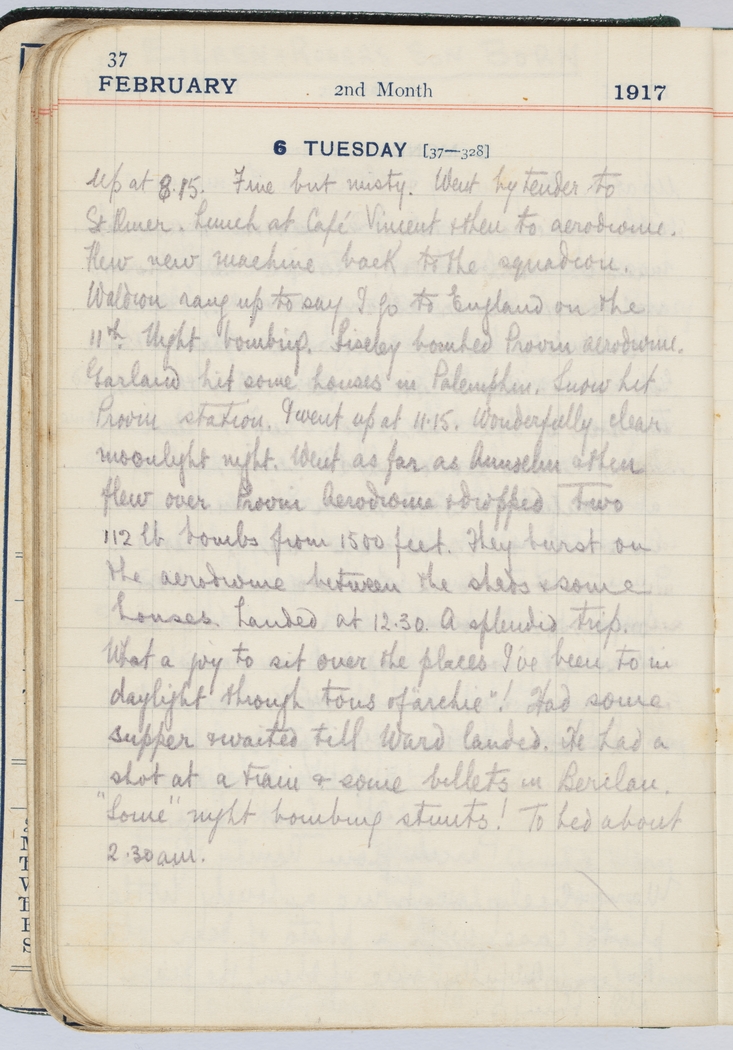 37
FEBRUARY 2nd Month 1917
6 TUESDAY [37—328]
Up at 8.15. Fine but misty. Went by tender to
St Omer. Lunch at Café Vincent & then to aerodrome.
Flew new machine back to the squadron.
Waldron rang up to say I go to England on the
11th. Night bombing. bombed Provin aerodrome.
Garland hit some houses in Palemphin. Snow hit
Provin station. I went up at 11.15. Wonderfully clear
moonlight night. Went as far as & then
flew over Provin Aerodrome & dropped two
112 lb bombs from 1500 feet. They burst on
the aerodrome between the sheds & some
houses. Landed at 12.30. A splendid trip.
What a joy to sit over the places I've been to in
daylight through tons of "archie"! Had some
supper & waited till Ward landed. He had a
shot at a train & some billets in Berclau.
"Some" night bombing stunts! To bed about
2.30 am.
M
T
W
T
F
S